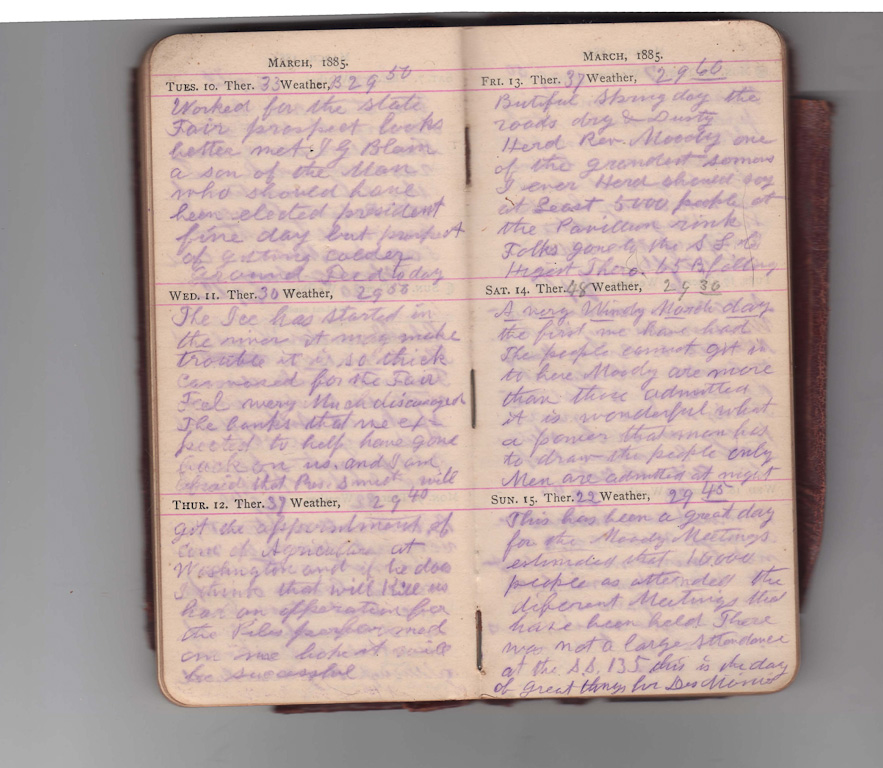 MARCH, 1885.
TUES. 10. Ther. 33 Weather, B 29 50
Worked for the state
Fair prospect looks
better met J G Blain
a son of the Man
who should have
been elected president
fine day but prospect
of getting colder
around Feed today
WED. 11. Ther. 30 Weather, 29 50
The Ice has started in
the river it may make
trouble it is so thick
Canvased for the Fair
Feel very Much discouraged
The banks that we ex-
pected to help have gone
back on us and I am
afraid that Pres Smith will
THUR. 12. Ther. 37 Weather, 29 40
get the appointment of
Com of Agriculture at
Washington and if he does
I think that will Kill us
had an opperation for
the Piles performed
on me hope it will
be sucessful
MARCH, 1885.
FRI. 13. Ther. 37 Weather, 29 60
Butiful Spring day the
roads dry & Dusty
Herd Rev. Moody one
of the grandest somons
I ever Herd should say
at Least 5000 people at
the Pavillion rink
Folks gone to the S L C
Higest Ther. 65 B falling
SAT. 14. Ther. 48 Weather, 29 30
A very Windy March day
the first we have had
The people cannot get in
to here Moody are more
than those admitted
it is wonderful what
a power that man has
to draw the people only
Men are admitted at night
SUN. 15. Ther. 22 Weather, 29 45
This has been a great day
for the Moody Meetings
estimated that 10000
people as attended the
diferent Meetings that
have been held There
was not a large attendance
at the S.S. 135 this is the day
of great things for Des Moines